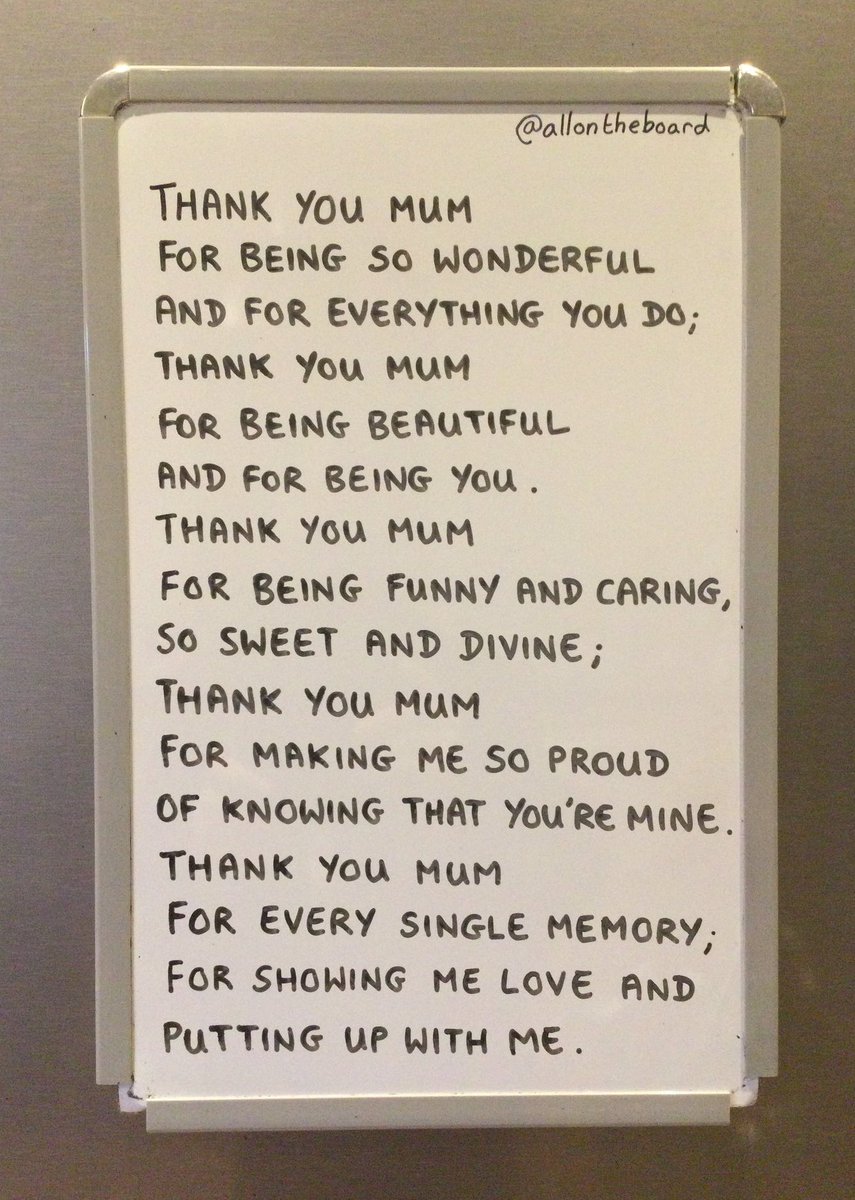 @allontheboard
THANK YOU MUM
FOR BEING SO WONDERFUL
AND FOR EVERYTHING YOU DO;
THANK YOU MUM
FOR BEING BEAUTIFUL
AND FOR BEING YOU.
THANK YOU MUM
FOR BEING FUNNY AND CARING,
SO SWEET AND DIVINE;
THANK YOU MUM
FOR MAKING ME SO PROUD
OF KNOWING THAT YOU'RE MINE.
THANK YOU MUM
FOR EVERY SINGLE MEMORY;
FOR SHOWING ME LOVE AND
PUTTING UP WITH ME.